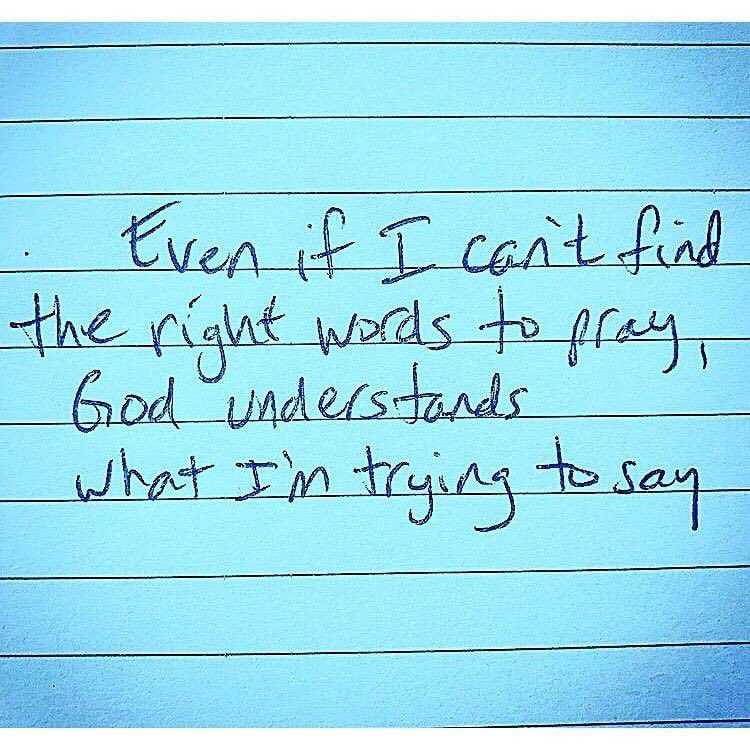 Even if I can't find
the right words to pray,
God understands
what I'm trying to say